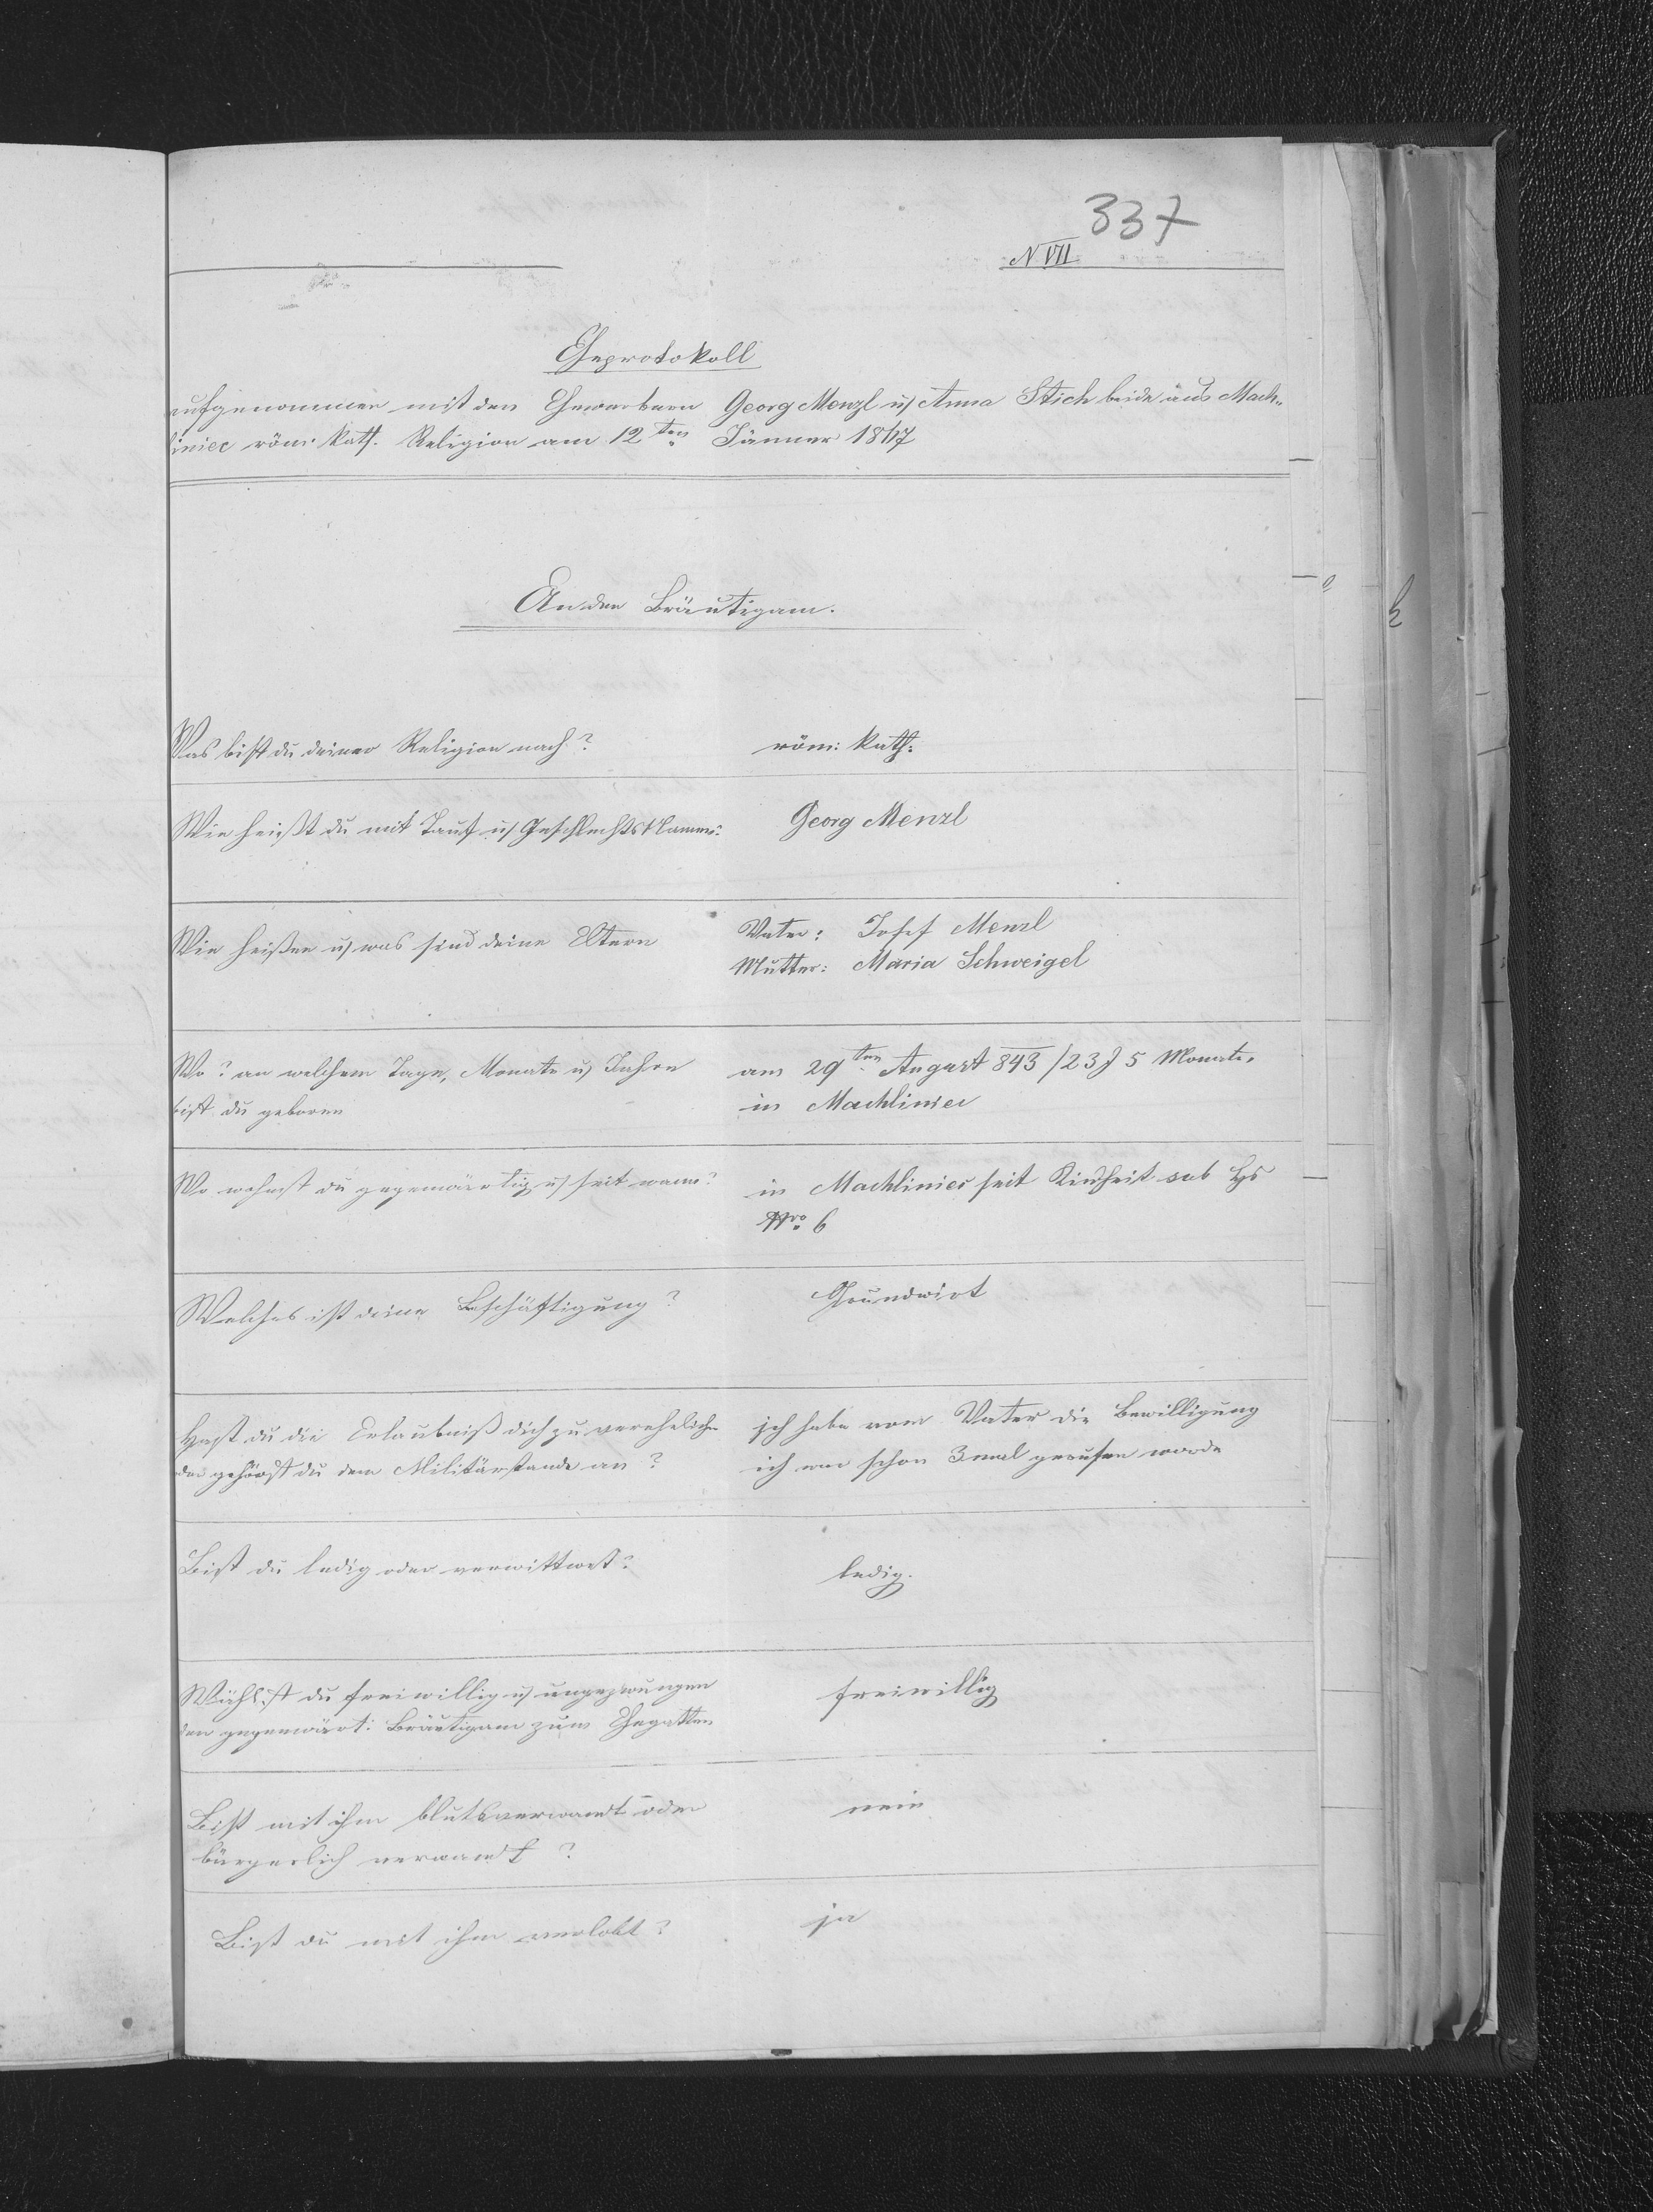 337
N VII
Eheprotokoll
aufgenommen mit den Ehewerbern Georg Menzl u. Anna Stich beide aus Mach„
liniec röm: kath. Religion am 12ten Jänner 1867
An den Bräutigam.
Was bist du deiner Religion nach?
röm: kath:
Wie heißt du mit Tauf u. Geschlechts Namen:
Georg Menzl
Wie heißen u. was sind deine Eltern
Vater: Josef Menzl
Mutter: Maria Schweigel
Wo? an welchem Tage, Monate u. Jahre
bist du geboren
am 29ten August 843 / 23 J 5 Monate.
in Machliniec
Wo wohnst du gegenwärtig u. seit wann?
in Machliniec seit Kindheit sub Hs
Nro 6
Welches ist deine Beschäftigung?
Grundwirt
Hast du die Erlaubniß dich zu verehelichen
oder gehörst du dem Militärstande an?
ich habe vom Vater die Bewilligung
ich war schon 3mal gerufen worde
Bist du ledig oder verwittwet?
ledig.
Wählst du freiwillig u. ungezwungen
den gegenwärt: Bräutigam zum Ehegatten
freiwillig
Bist mit ihm blutsverwandt oder
bürgerlich verwandt?
nein
Bist du mit ihm verlobt?
ja